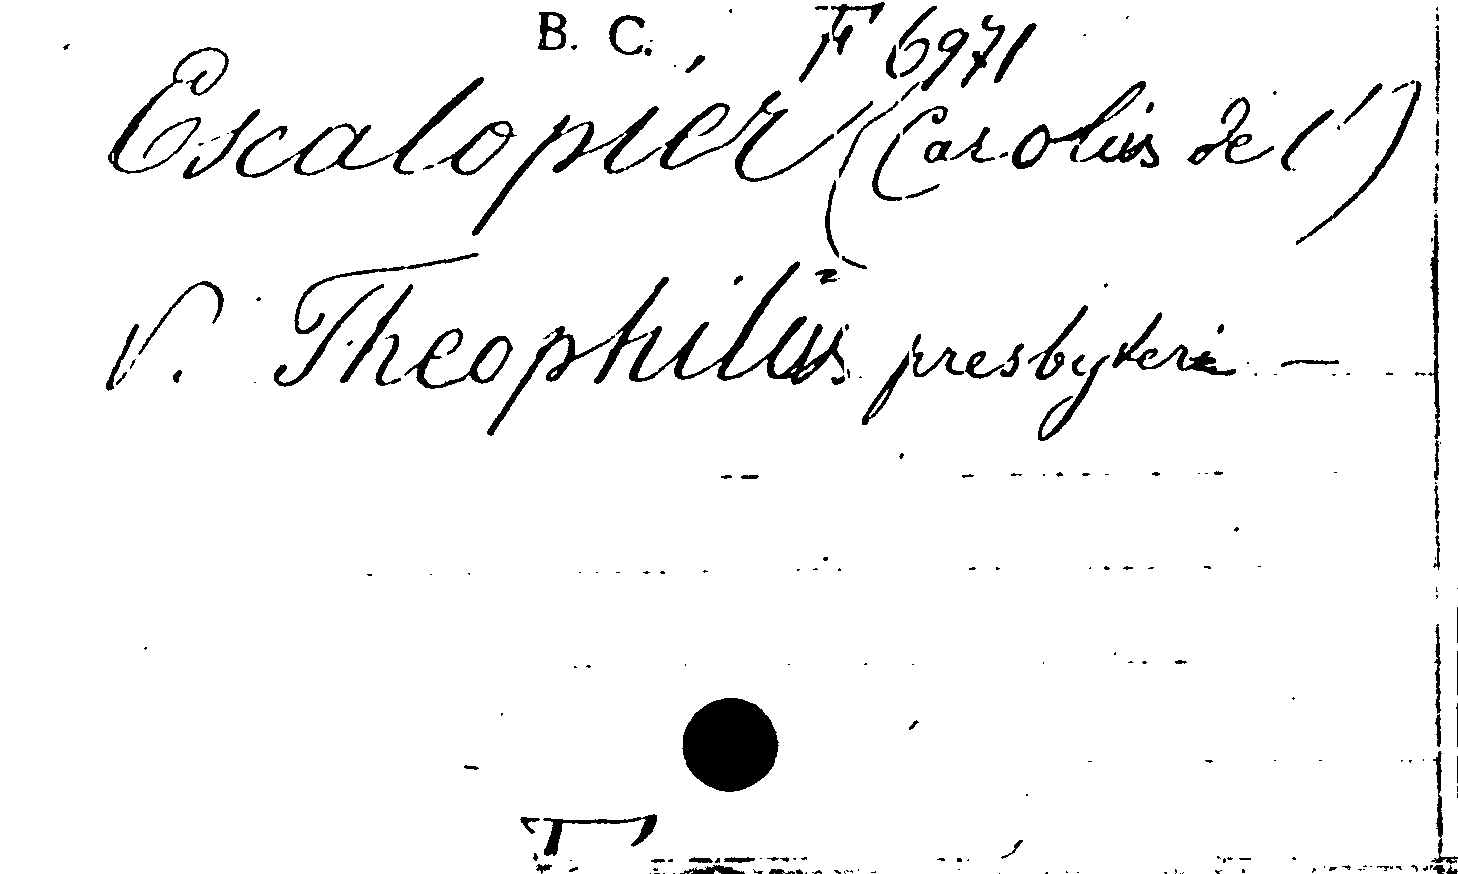 B. C. F 6971
Escalopier (Carolus de l')
V. Theophilus presbyteri —